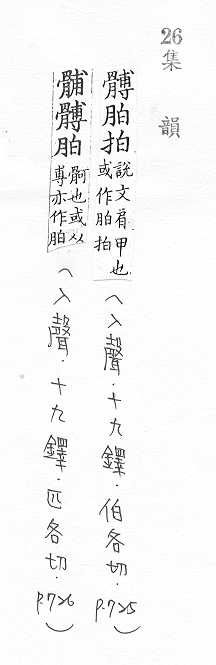 26
集韻
髆胉拍 說文肩甲也或作胉拍
(入聲.十九鐸.伯各切.p.725)
䪙髆胉 䯊也或从尃亦作胉
(入聲.十九鐸.匹各切.p.726)